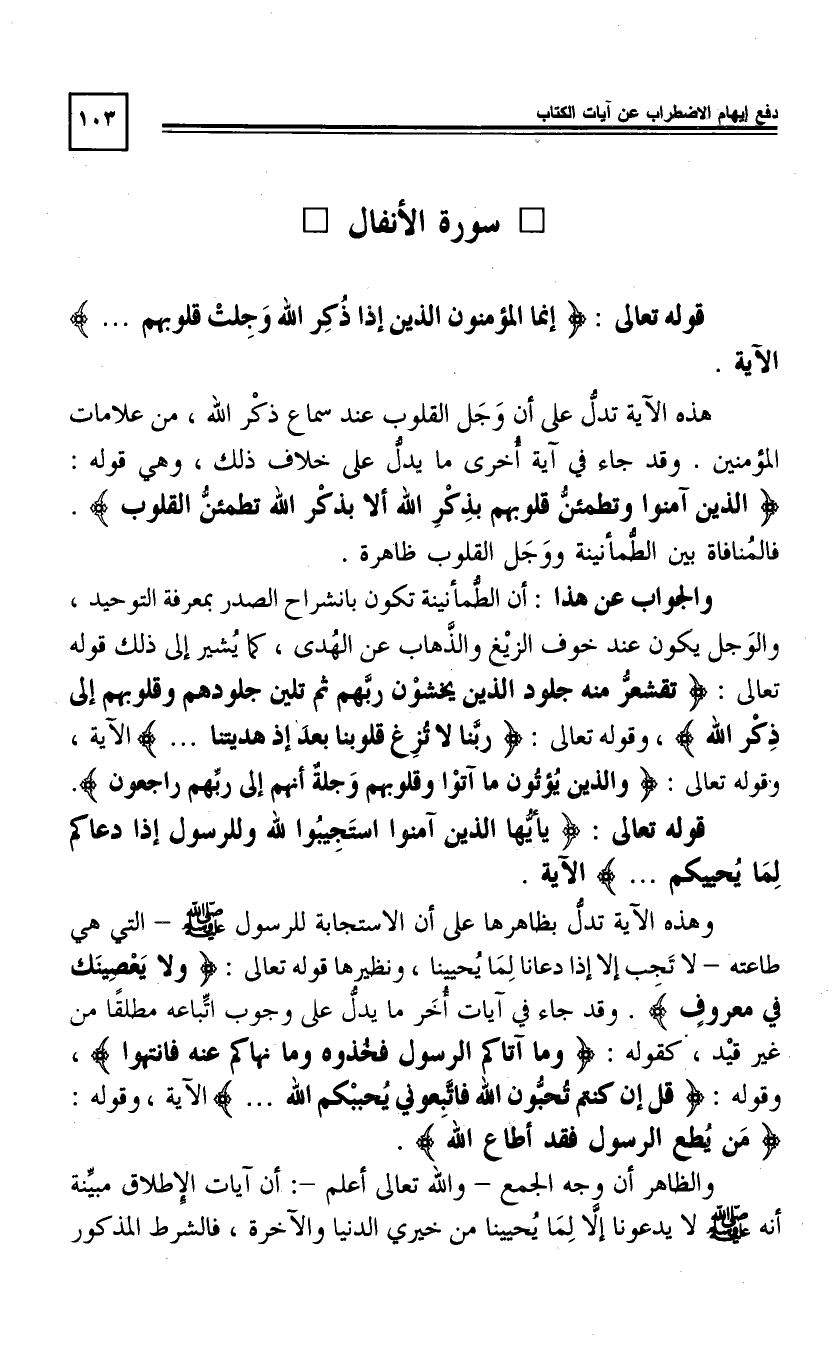 دفع إيهام الاضطراب عن آيات الكتاب
١٠٣
□ سورة الأنفال □
قوله تعالى : ﴿ إنما المؤمنون الذين إذا ذُكِر الله وَجِلتْ قلوبهم ... ﴾
الآية .
هذه الآية تدلُّ على أن وَجَل القلوب عند سماع ذكْر الله ، من علامات
المؤمنين . وقد جاء في آية أُخرى ما يدلُّ على خلاف ذلك ، وهي قوله :
﴿ الذين آمنوا وتطمئنُّ قلوبهم بذِكْرِ الله ألا بذكْر الله تطمئنُّ القلوب ﴾ .
فالمُنافاة بين الطُّمأنينة ووَجَل القلوب ظاهرة .
والجواب عن هذا : أن الطُّمأنينة تكون بانشراح الصدر بمعرفة التوحيد ،
والوَجل يكون عند خوف الزيْغ والذَّهاب عن الهُدى ، كما يُشير إلى ذلك قوله
تعالى : ﴿ تقشعرُّ منه جلود الذين يخشوْن ربَّهم ثم تلين جلودهم وقلوبهم إلى
ذِكْر الله ﴾ ، وقوله تعالى : ﴿ ربَّنا لا تُزِغ قلوبنا بعدَ إذ هديتنا ... ﴾ الآية ،
وقوله تعالى : ﴿ والذين يُؤتُون ما آتوْا وقلوبهم وَجلةٌ أنهم إلى ربِّهم راجعون ﴾.
قوله تعالى : ﴿ يأيُّها الذين آمنوا استَجِيبُوا لله وللرسول إذا دعاكم
لِمَا يُحييكم ... ﴾ الآية .
وهذه الآية تدلُّ بظاهرها على أن الاستجابة للرسول ﷺ – التي هي
طاعته – لا تَجِب إلا إذا دعانا لِمَا يُحيينا ، ونظيرها قوله تعالى : ﴿ ولا يَعْصِينَك
في معروفٍ ﴾ . وقد جاء في آيات أُخَر ما يدلُّ على وجوب اتِّباعه مطلقًا من
غير قيْد ، كقوله : ﴿ وما آتاكم الرسول فخُذوه وما نهاكم عنه فانتهوا ﴾ ،
وقوله : ﴿ قل إن كنتم تُحبُّون الله فاتَّبِعوني يُحببْكم الله ... ﴾ الآية ، وقوله :
﴿ مَن يُطع الرسول فقد أطاع الله ﴾ .
والظاهر أن وجه الجمع – والله تعالى أعلم –: أن آيات الإطلاق مبيِّنة
أنه ﷺ لا يدعونا إلَّا لِمَا يُحيينا من خيري الدنيا والآخرة ، فالشرط المذكور